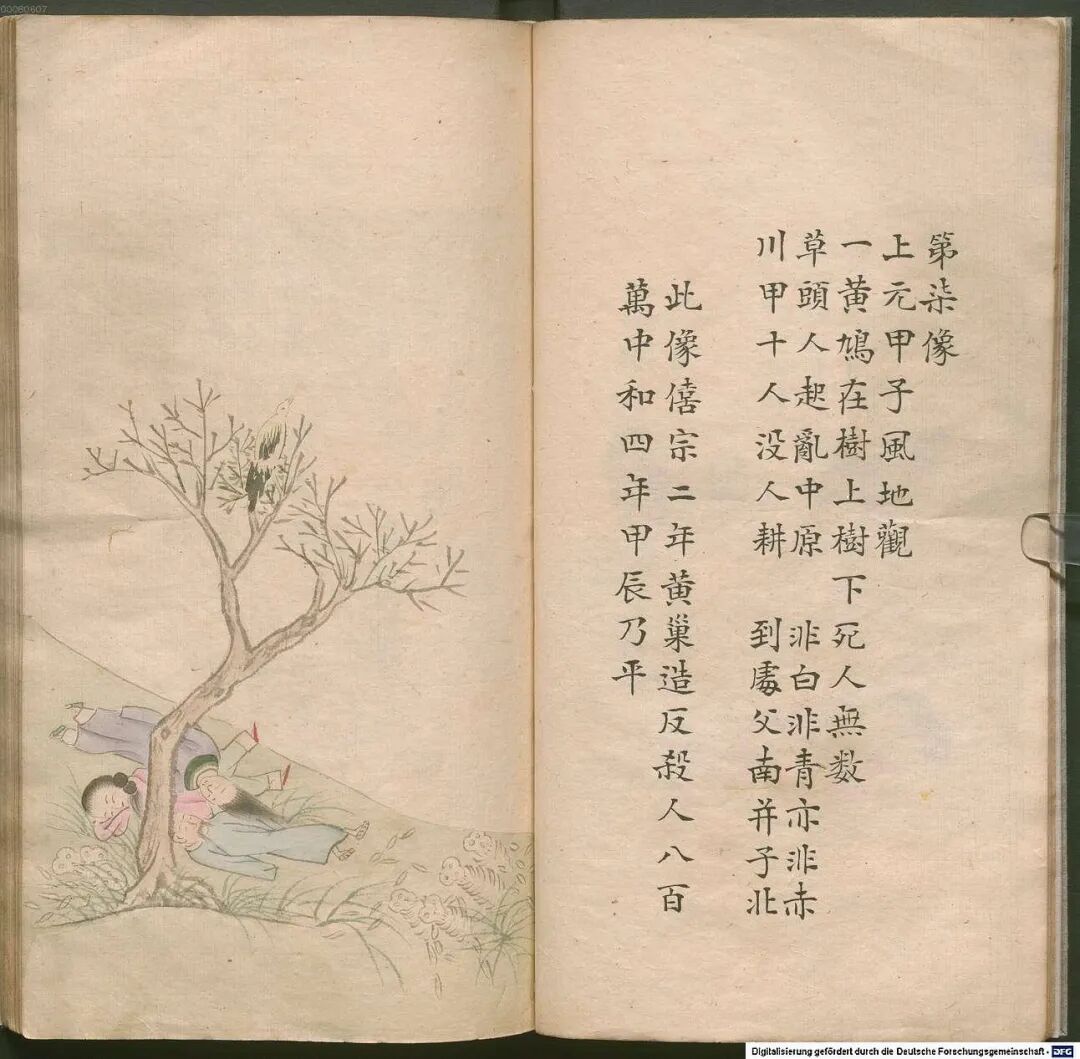 00060607
第柒像
上元甲子風地觀
一黃鳩在樹上樹下死人無数
草頭人起亂中原 非白非青亦非赤
川甲十人没人耕 到處父南并子北
此像僖宗二年黃巢造反殺人八百
萬中和四年甲辰乃平
Digitalisierung gefördert durch die Deutsche Forschungsgemeinschaft - DFG